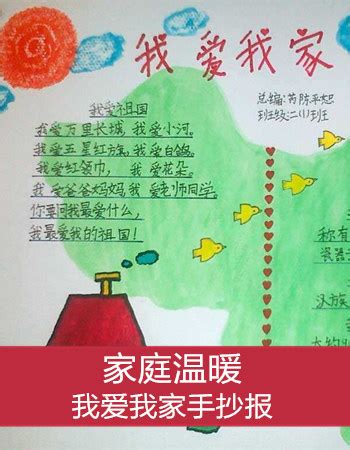 我爱我家
总编:芮陈平恕
班级:二(1)班
我爱祖国
我爱万里长城,我爱小河。
我爱五星红旗,我爱白鸽。
我爱红领巾, 我爱花朵。
我爱爸爸妈妈我爱老师同学。
你要问我最爱什么,
我最爱我的祖国!
称有
瓷器
汉族
家庭温暖
我爱我家手抄报